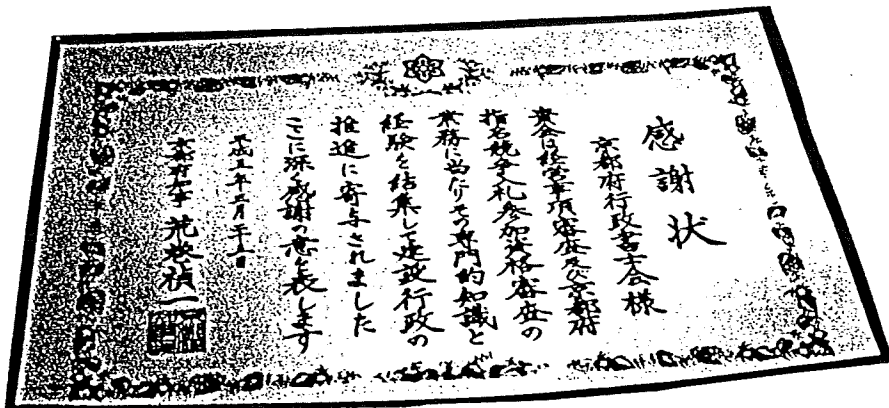 感謝状
京都府行政書士会様
貴会は経営事項審査及び京都府
指名競争入札参加資格審査の
業務に当たりその専門的知識と
経験を結集して建設行政の
推進に寄与されました
ここに深く感謝の意を表します
平成五年三月二十五日
京都府知事 荒巻禎一